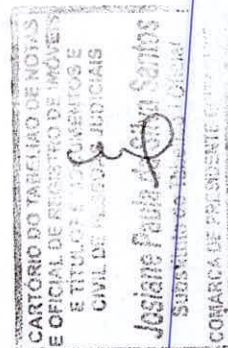 CARTÓRIO DO TABELIÃO DE NOTAS
E OFICIAL DE REGISTRO DE IMÓVEIS
E TÍTULOS E DOCUMENTOS E
CIVIL DE PESSOAS JUDICIAIS
Josiane Paula Santos
Substituto do
COMARCA DE PRESIDENTE